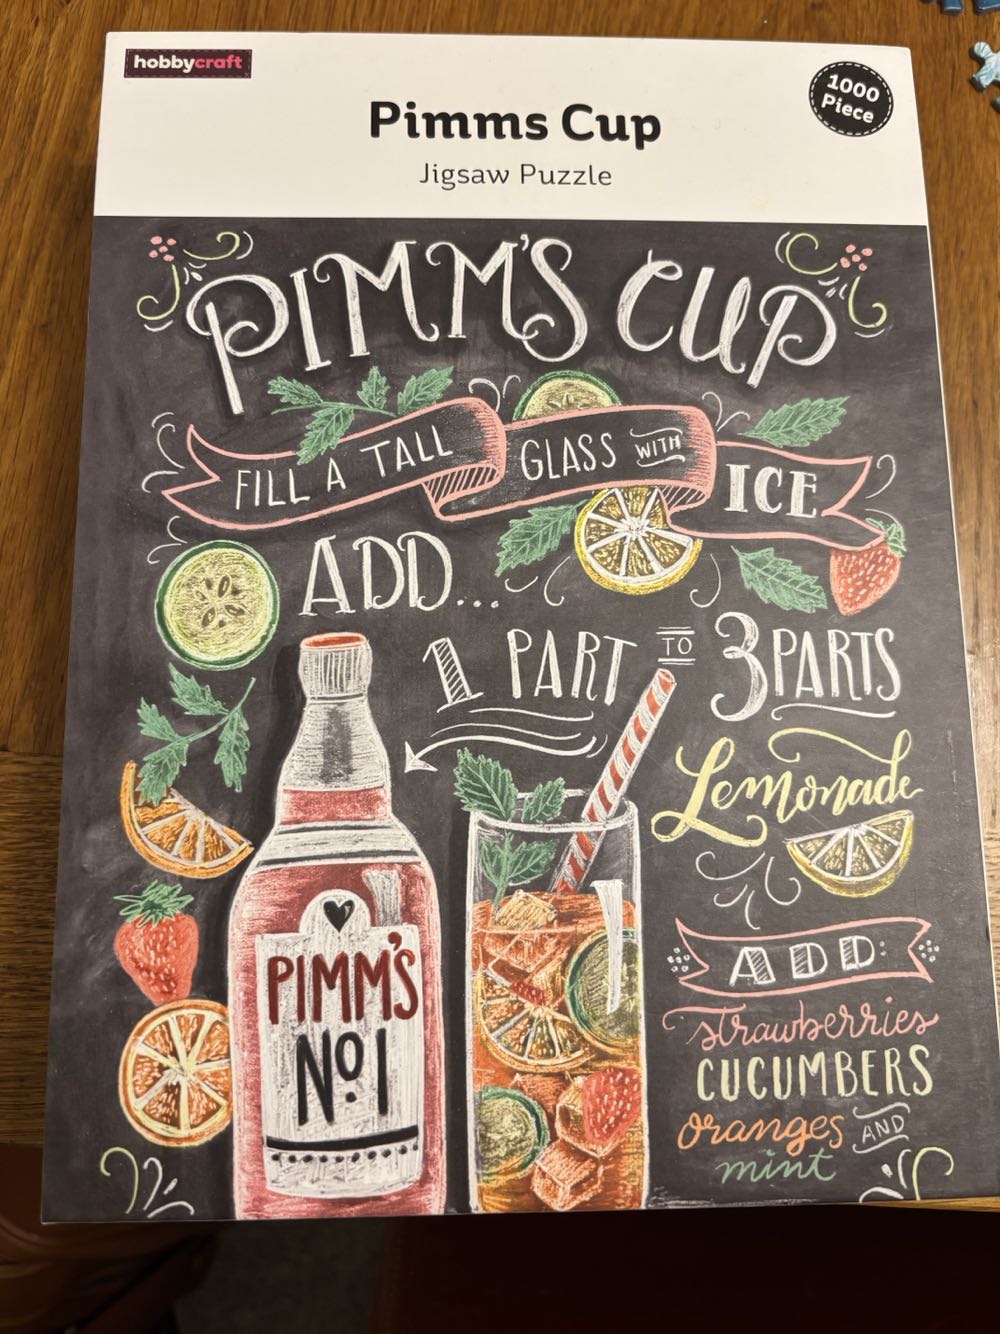 hobbycraft
1000
Piece
Pimms Cup
Jigsaw Puzzle
PIMM'S CUP
FILL A TALL GLASS WITH ICE
ADD...
1 PART TO 3 PARTS
Lemonade
ADD:
strawberries
CUCUMBERS
oranges AND
mint
PIMM'S
No1